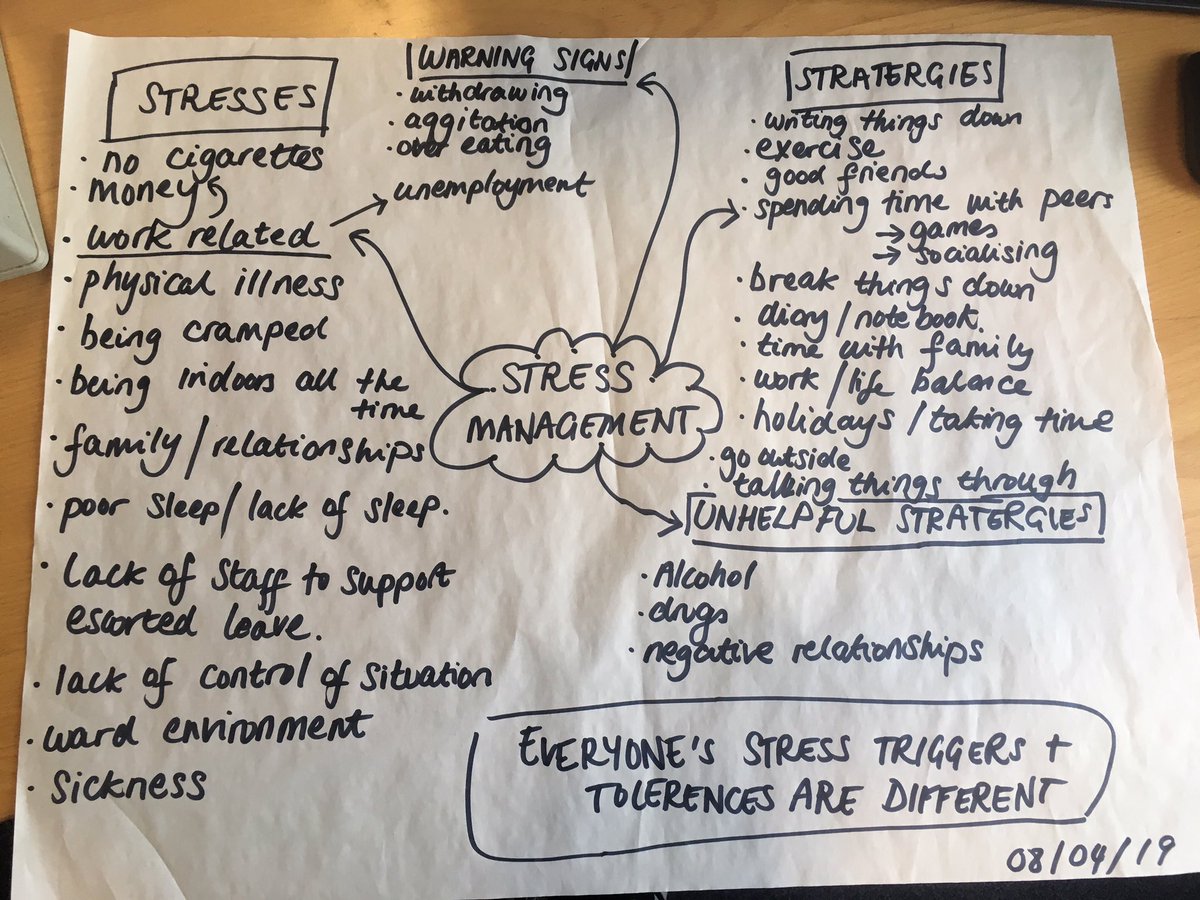 STRESSES
· no cigarettes
· money
· work related
unemployment
· physical illness
· being cramped
· being indoors all the
time
· family/relationships
· poor sleep/lack of sleep.
· lack of staff to support
escorted leave.
· lack of control of situation
· ward environment
· sickness
WARNING SIGNS
· withdrawing
· aggitation
· over eating
STRESS
MANAGEMENT
STRATERGIES
· writing things down
· exercise
· good friends
· spending time with peers
→ games
→ socialising
· break things down
· diary/notebook.
· time with family
· work/life balance
· holidays/taking time
· go outside
· talking things through
UNHELPFUL STRATERGIES
· Alcohol
· drugs
· negative relationships
EVERYONE'S STRESS TRIGGERS +
TOLERENCES ARE DIFFERENT
08/04/19